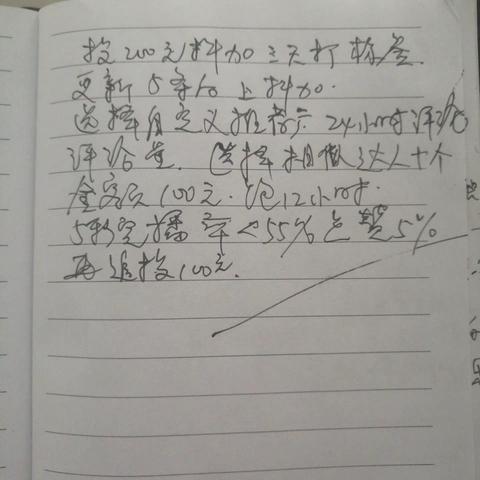 投200元抖加三天打标签.
更新5条后上抖加.
选择自定义推荐 24小时评论
评论量. 选择相似达人十个
金额 100元. 12小时.
5秒完播率<55% 点赞5%
再追投100元.